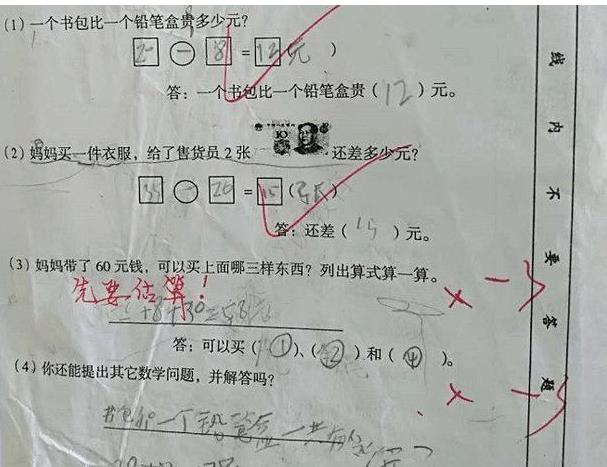 (1) 一个书包比一个铅笔盒贵多少元?
20 - 8 = 12 (元)
答:一个书包比一个铅笔盒贵( 12 )元。
(2) 妈妈买一件衣服,给了售货员 2 张 还差多少元?
35 - 20 = 15 (元)
答:还差( 15 )元。
(3) 妈妈带了 60 元钱,可以买上面哪三样东西?列出算式算一算。
先要估算!
+8+30=58
答:可以买( ① )、( ② )和( ④ )。
(4) 你还能提出其它数学问题,并解答吗?
书包和一个铅笔盒一共
线内不要答题